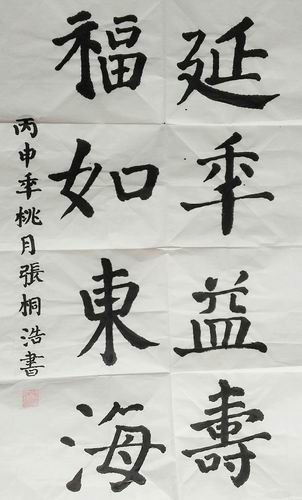 延年益壽
福如東海
丙申年桃月張桐浩書